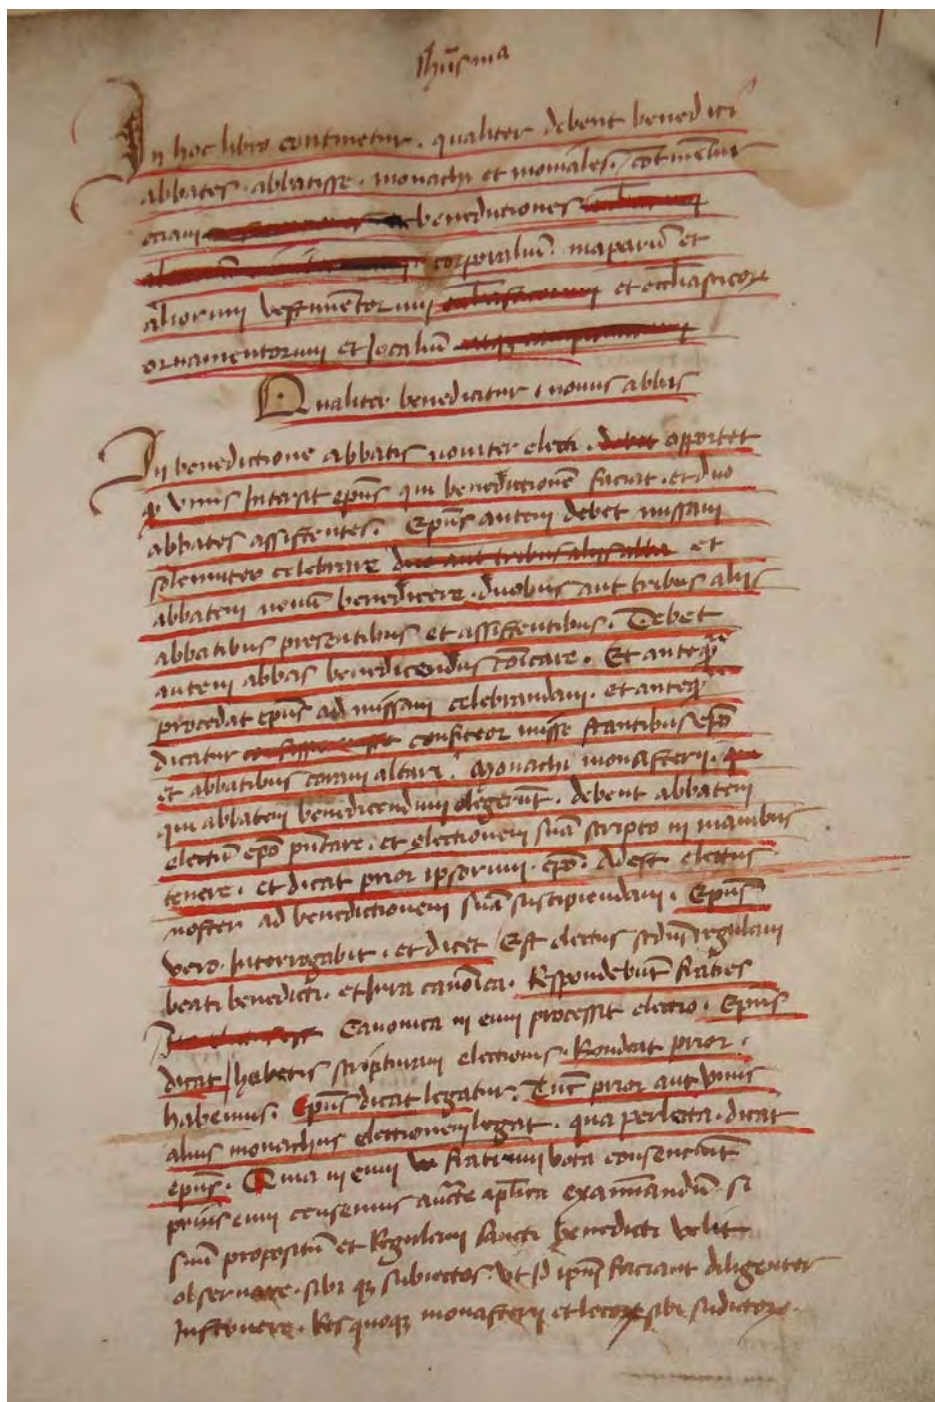 Ihūs ma
In hoc libro continetur. qualiter debent benedici
abbates. abbatisse. monachi et moniales. contine͞tur
eciam benedictiones
corporaliū. maparū et
aliorum vestimētorum et eccl̄iasticorꝝ
ornamentorum et Jocaliū
Qualiter benedicitur. nouus abbas
In benedictione abbatis nouiter electi. debet opportet
ꝙ vnus Intersit ep̄us qui benedictionē faciat. et duo
abbates assistentes. Ep̄us autem debet missam
solemniter celebrare duo aut tribus et
abbatem nouū benedicere. duobus aut tribus alijs
abbatibus presentibus et assistentibus. Debet
autem abbas benedicendus cōicare. Et anteqᷓ
procedat ep̄us ad missam celebrandam. et anteqᷓ
dicatur confiteor misse stantibus ep̄o
et abbatibus coram altari. Monachi monasterij.
qui abbatem benedicendum elegerūt. debent abbatem
electū ep̄o pn̄tare. et electionem suā scripto in manibus
tenere. et dicat prior ipsorum. ep̄o. Adest electus
noster ad benedictionem suā suscipiendam. Ep̄us
vero. Interrogabit. et dicet Est electus scdm̄ regulam
beati benedicti. et Jura canōica. Respondebūt fratres
Canonica in eum processit electio. Ep̄us
dicat habetis scripturam electionis. Rondeat prior.
habemus. Ep̄us dicat legatur. Tūc prior aut vnus
alius monachus electionem legat. qua perlecta. dicat
ep̄us. Quia in eum fratrum vota consenciūt
prius eum censemus aucte apl̄ica examinandū. si
suū propositū et Regulam sancti benedicti velit
obseruare. sibi qꝫ subiectos. vt id ipm̄ faciant diligenter
Instruere. Res quoqꝫ monasterij et